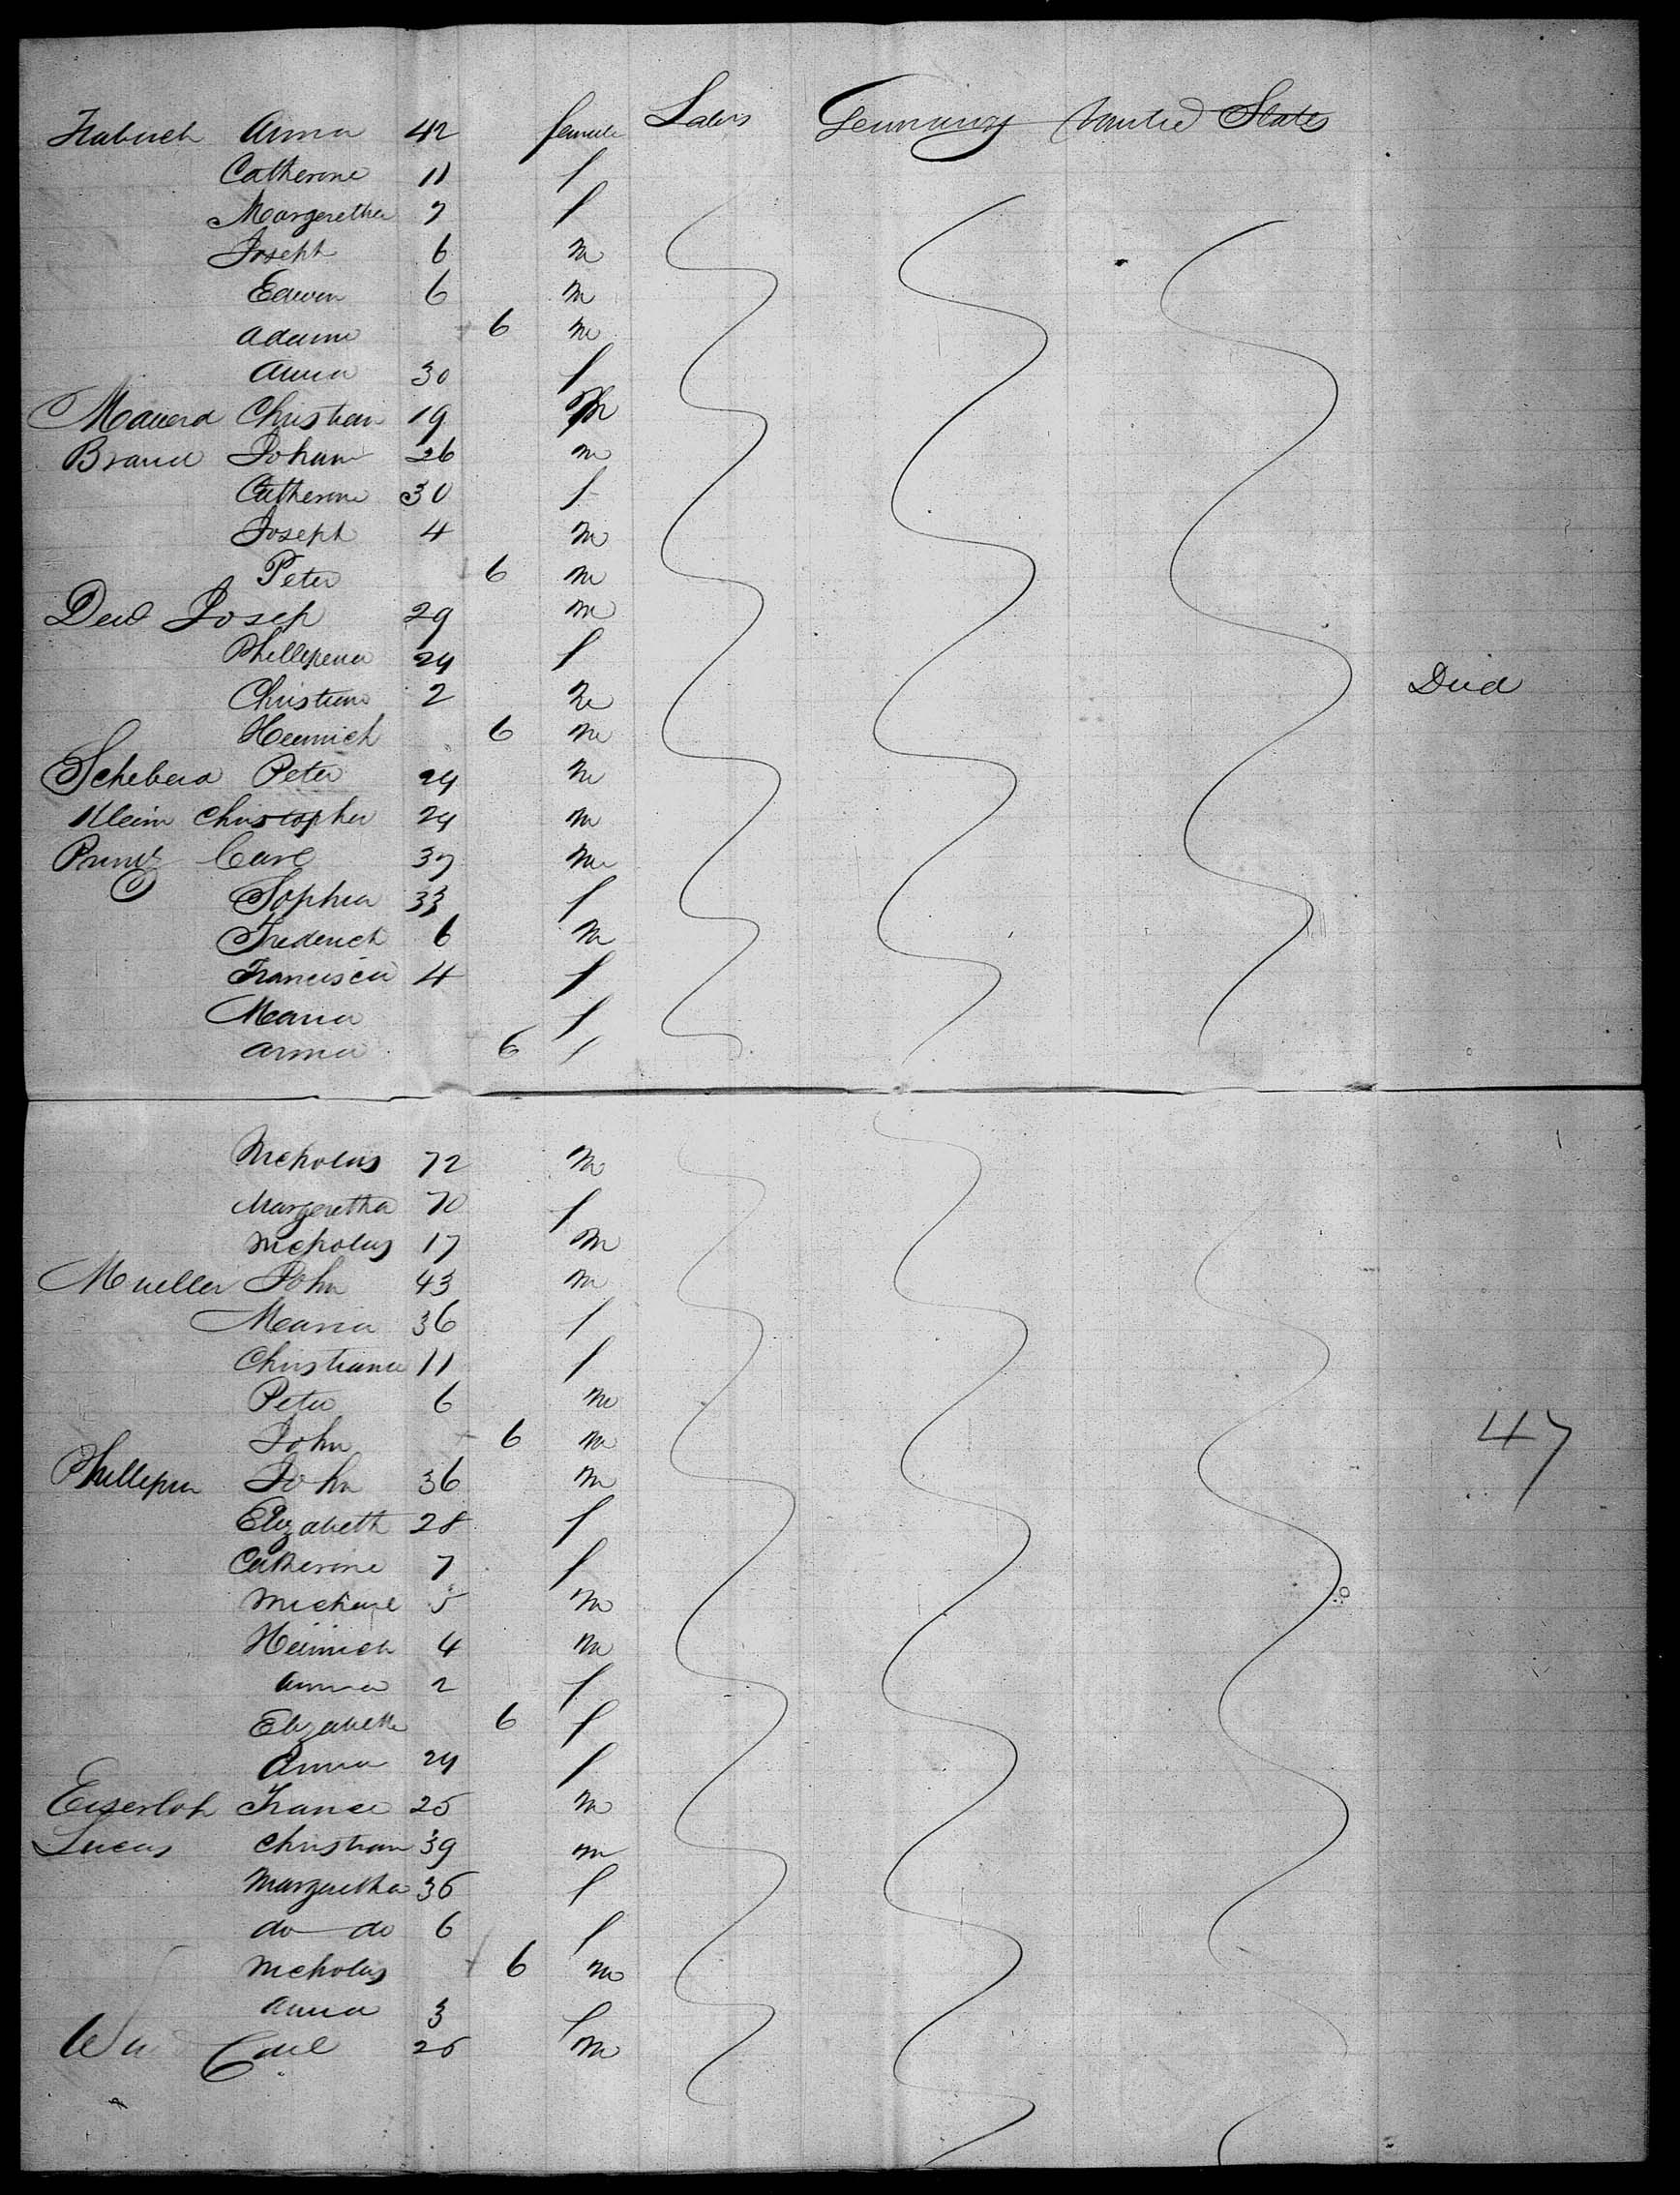 Habuch Anna 42 female Labrs Germany United States
Catherine 11 f
Margeretha 7 f
Joseph 6 m
Edwin 6 m
Adam 6 m
Anna 30 f
Christian 19 m
Brand Johann 26 m
Catherine 30 f
Joseph 4 m
Peter 6 m
Josep 29 m
Phillepena 24 f
Christian 2 m Died
Heinrich 6 m
Peter 24 m
Klein Christopher 24 m
Prinz Carl 37 m
Sophia 33 f
Frederick 6 m
Francisca 4 f
Maria f
Anna 6 f
Nicholas 72 m
Margeretha 70 f
Nicholas 17 m
Mueller John 43 m
Maria 36 f
Christiana 11 f
Peter 6 m
John 6 m
47
John 36 m
Elizabeth 28 f
Catherine 7 f
Michael 5 m
Heinrich 4 m
Anna 2 f
Elizabeth 6 f
Anna 24 f
Eiserloh Franci 25 m
Lucas Christian 39 m
Margaretha 36 f
do do 6 f
Nicholas 6 m
Anna 3 f
Carl 25 m